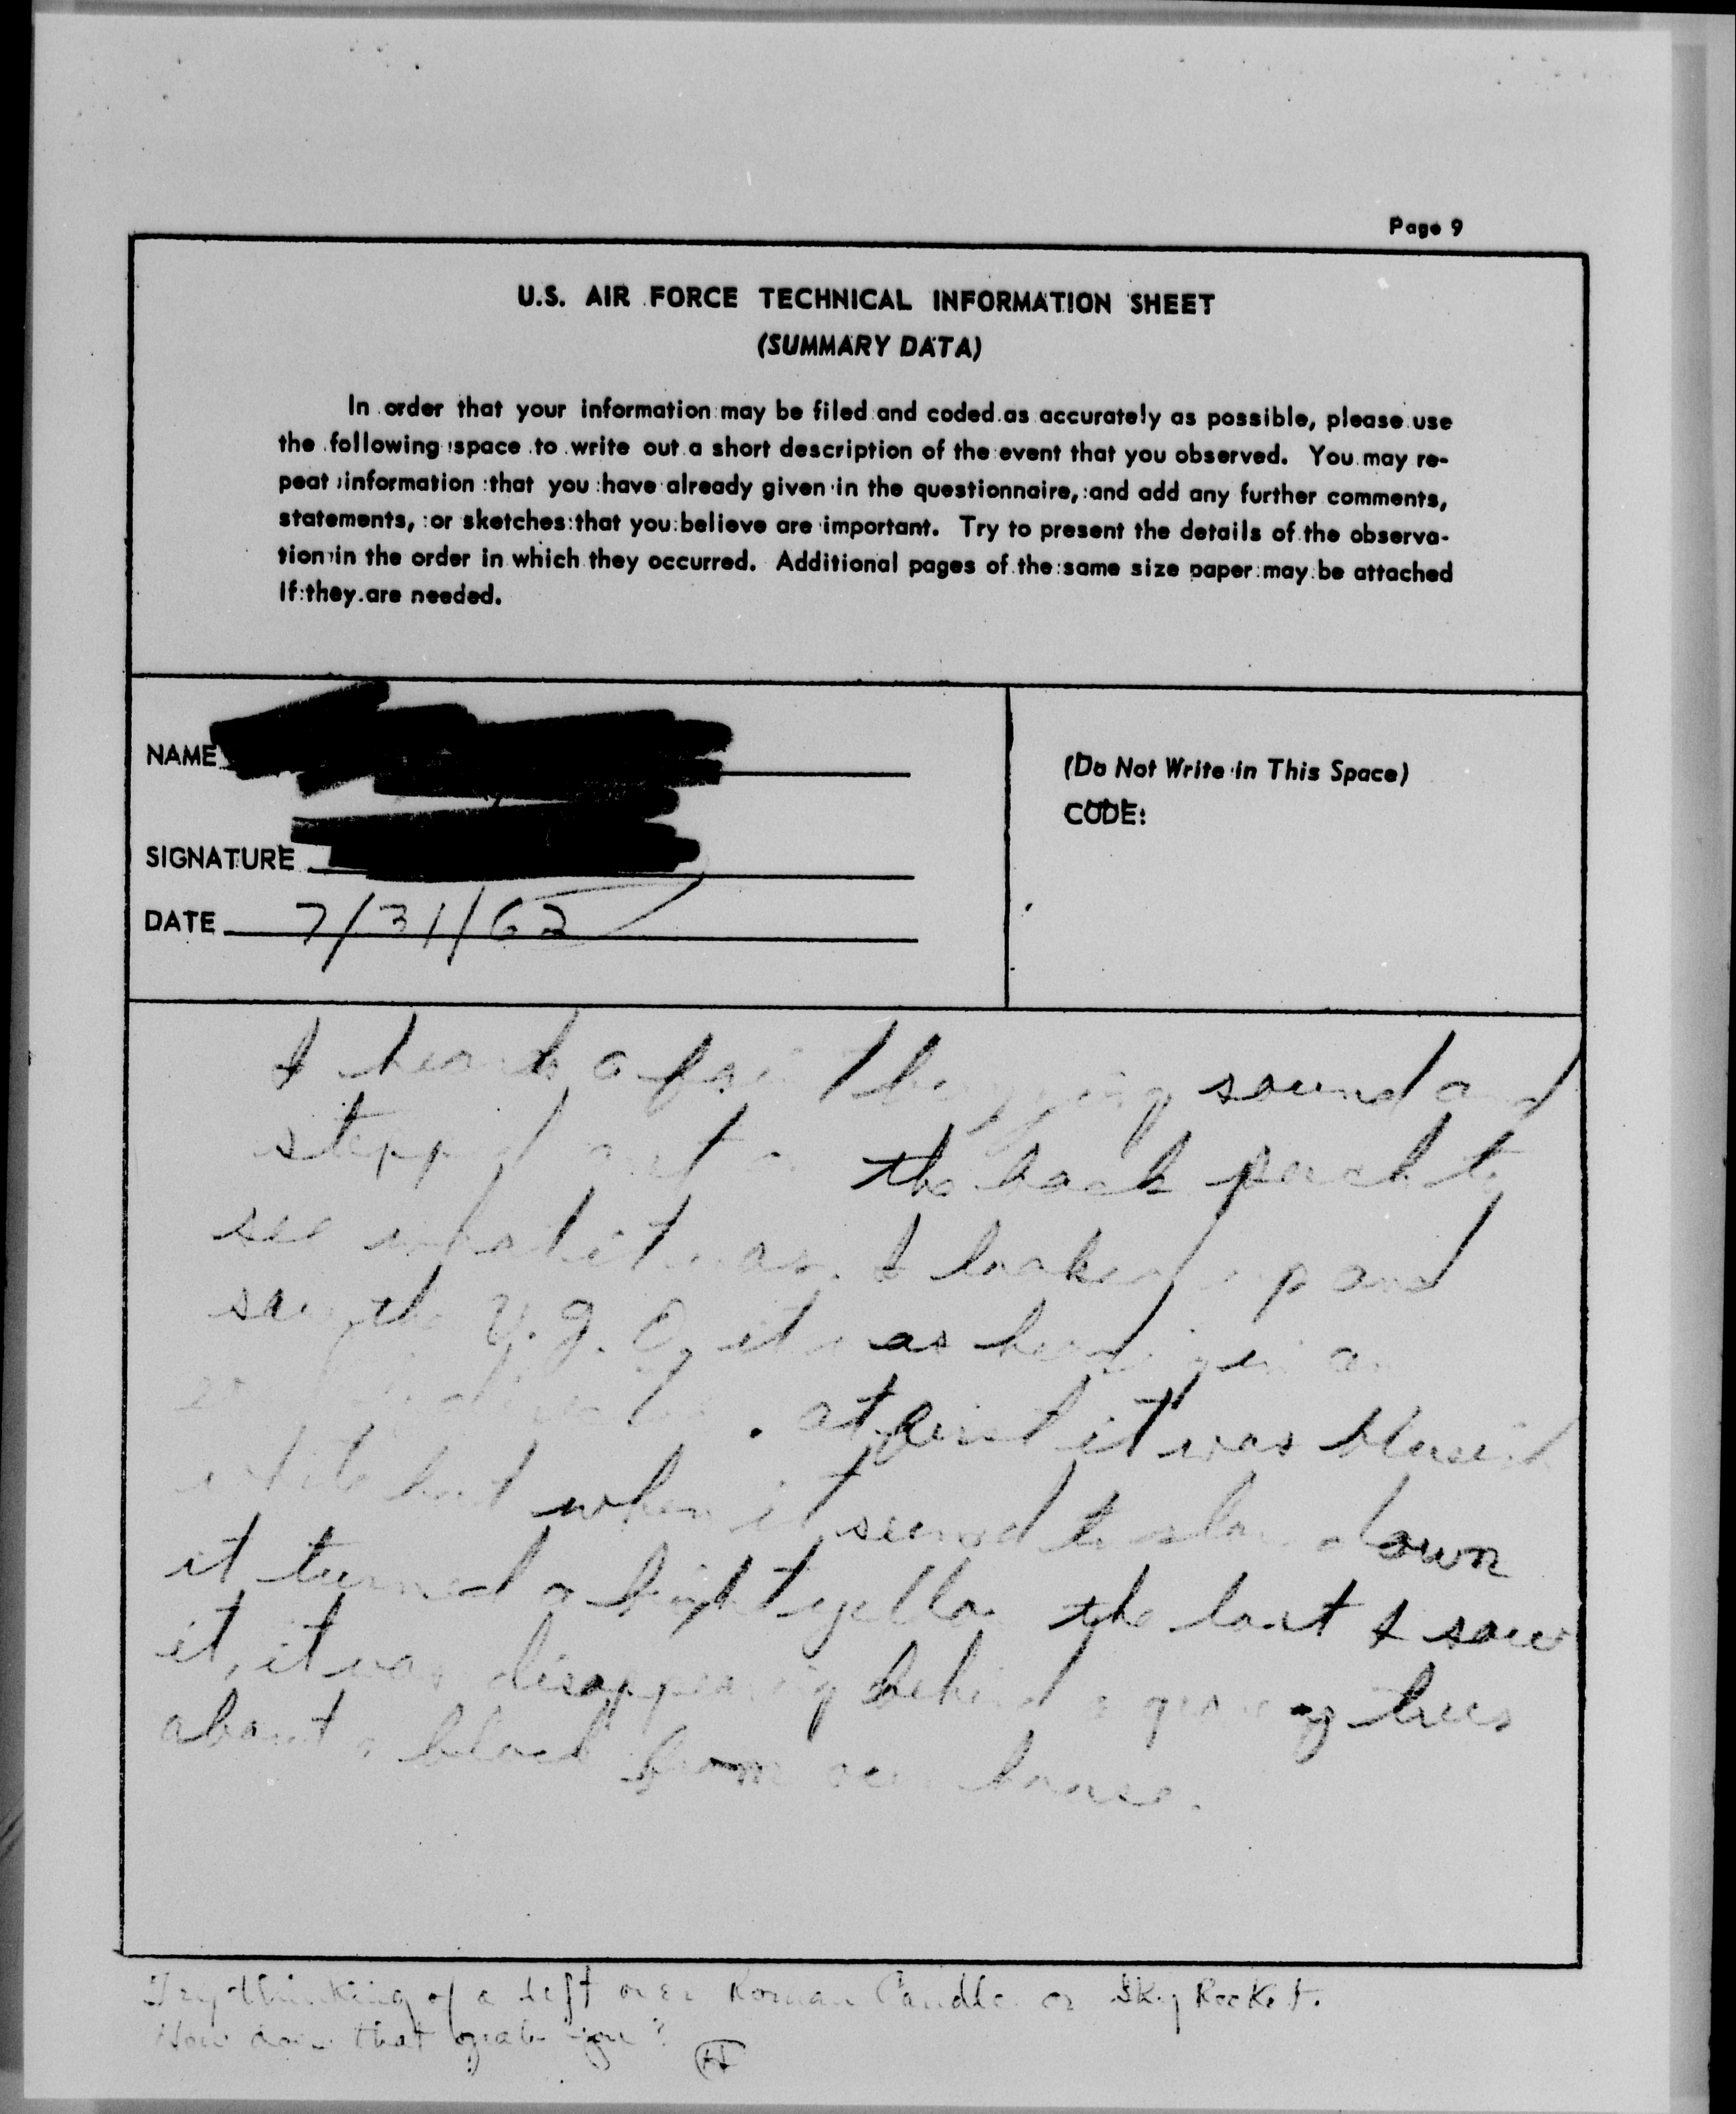 Page 9
U.S. AIR FORCE TECHNICAL INFORMATION SHEET
(SUMMARY DATA)
In order that your information may be filed and coded as accurately as possible, please use
the following space to write out a short description of the event that you observed. You may re-
peat information that you have already given in the questionnaire, and add any further comments,
statements, or sketches that you believe are important. Try to present the details of the observa-
tion in the order in which they occurred. Additional pages of the same size paper may be attached
if they are needed.
NAME
(Do Not Write in This Space)
CODE:
SIGNATURE
DATE 7/31/62
I heard a faint buzzing sound and
stepped out on the back porch to
see what it was. I looked up and
saw the it was heading in an
. at first it was blueish
white but when it seemed to slow down
it turned a light yellow the last I saw
it, it was disappearing behind a group trees
about a block from our house.
Try thinking of a left over Roman Candle or Sky Rocket.
How does that grab you?